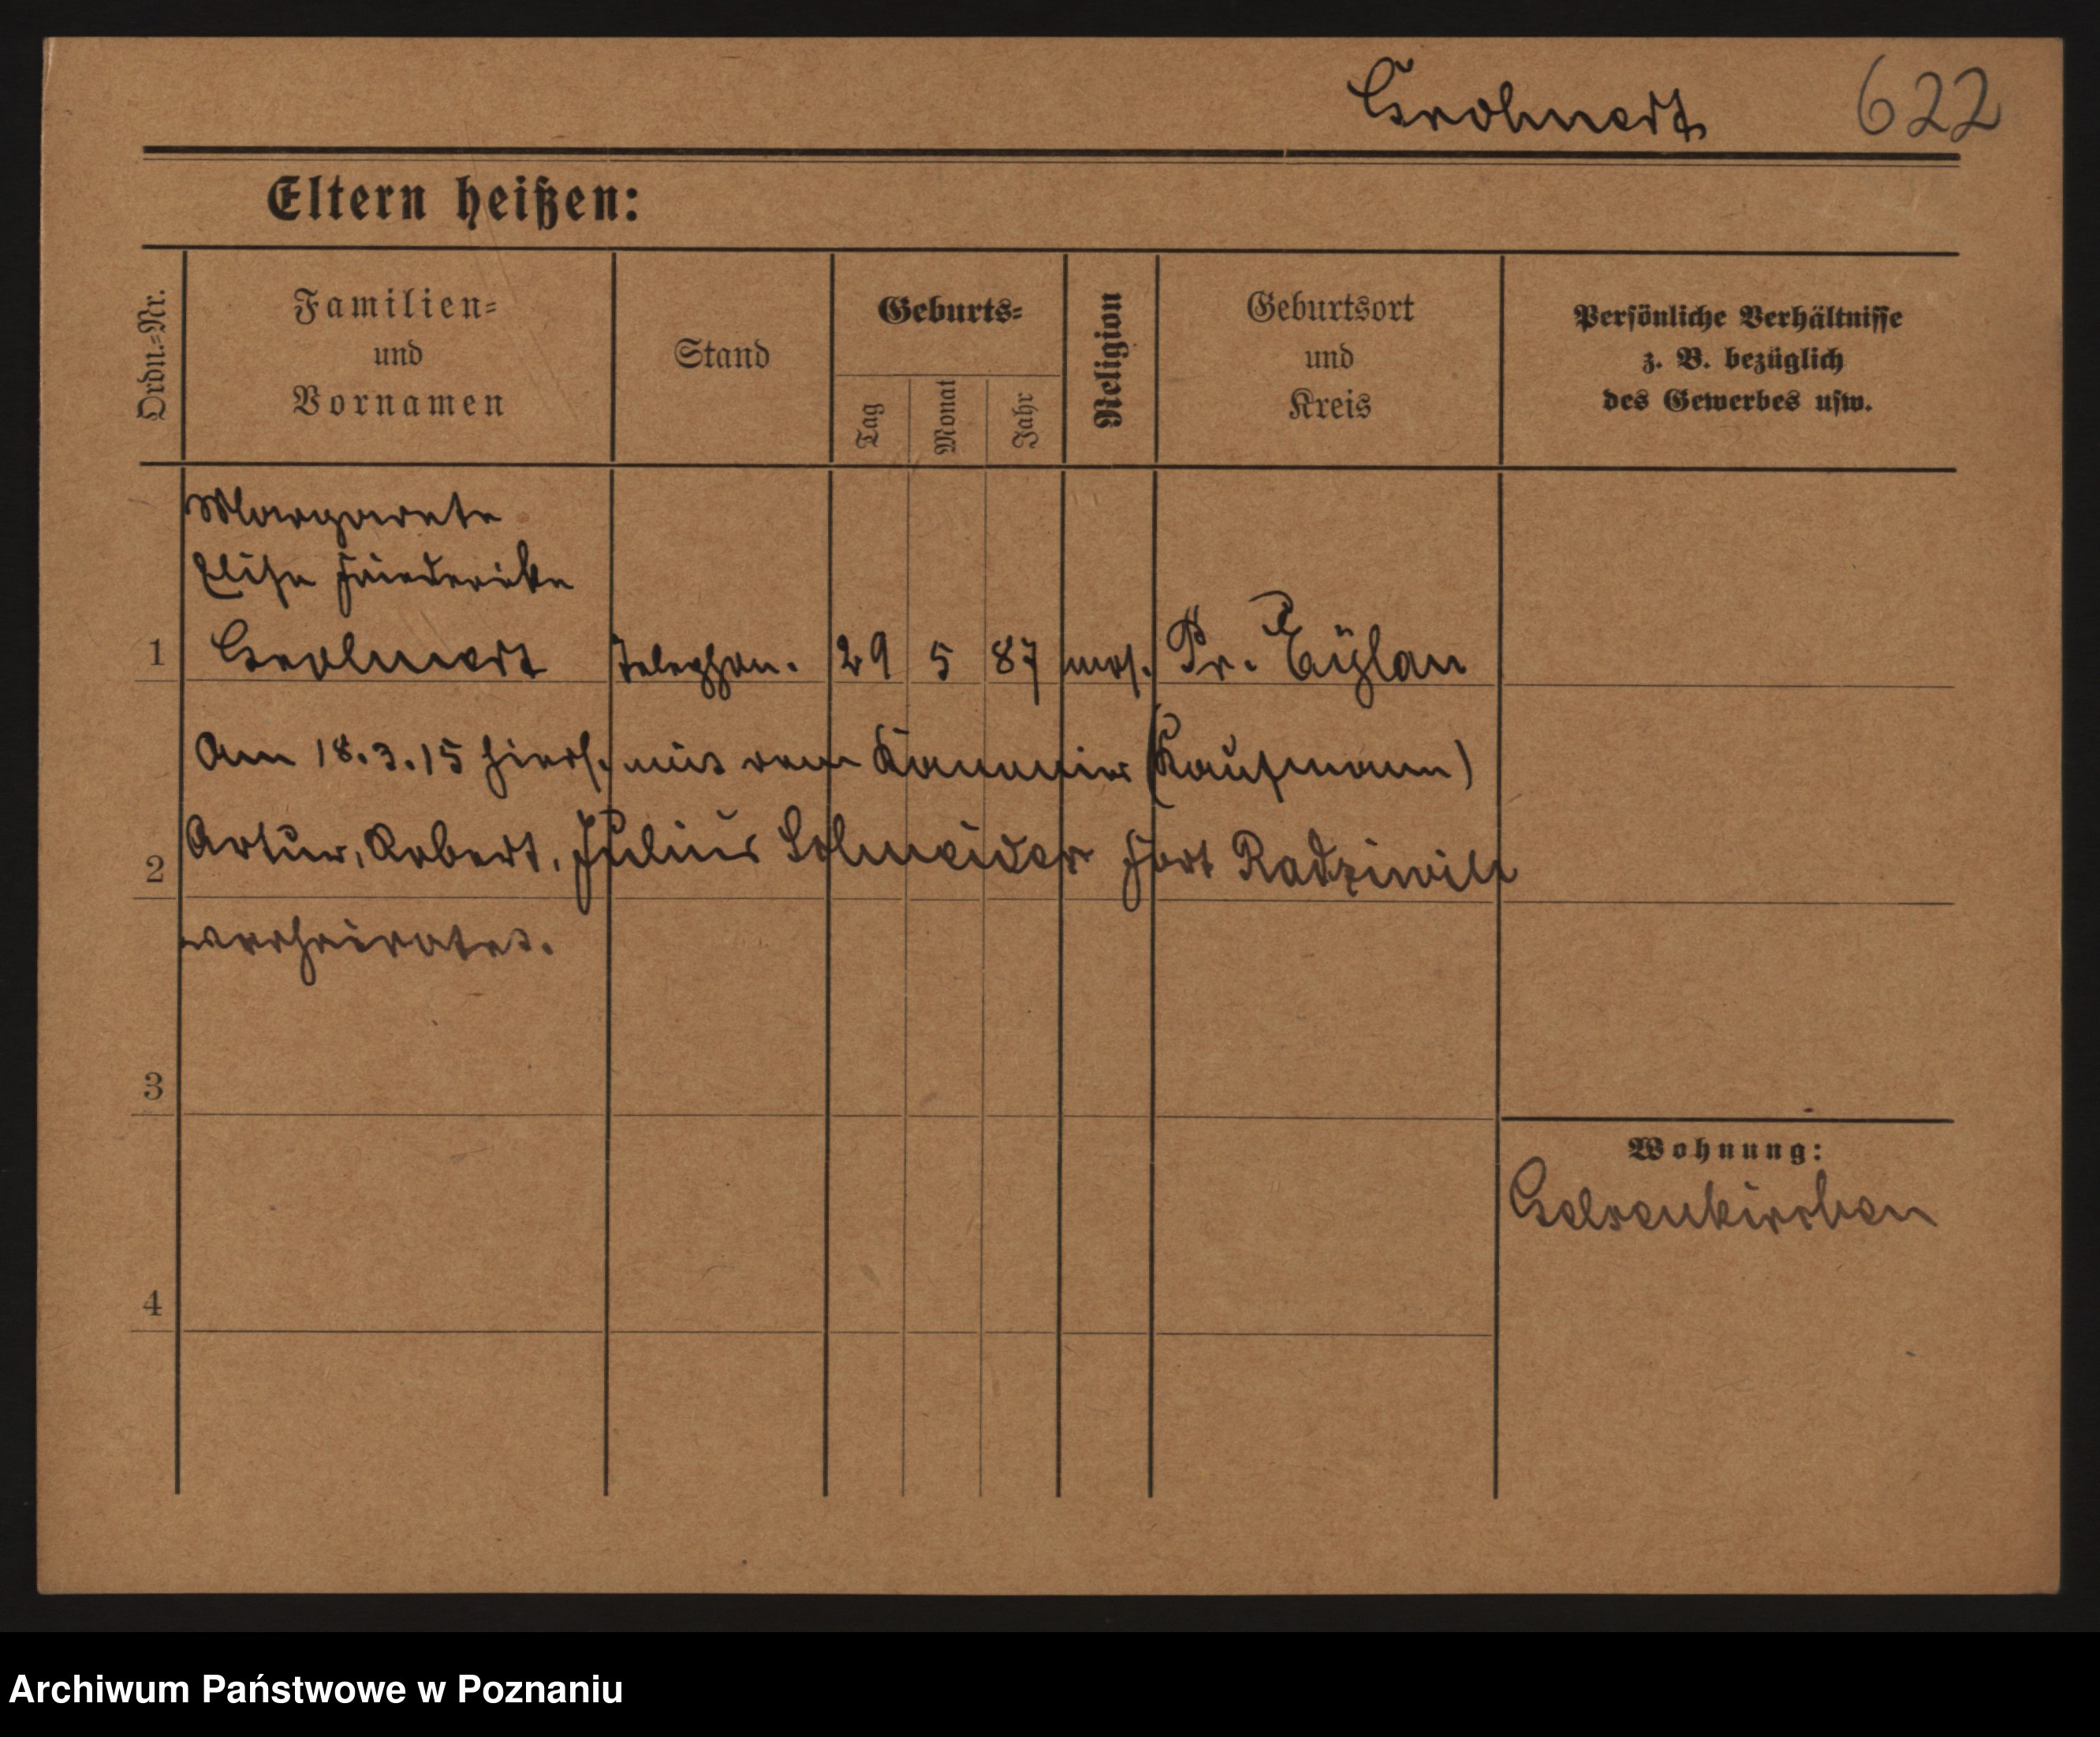 Grohnert 622
Eltern heißen:
Ordn.=Nr.
Familien=
und
Vornamen
Stand
Geburts=
Tag
Monat
Jahr
Religion
Geburtsort
und
Kreis
Persönliche Verhältnisse
z. B. bezüglich
des Gewerbes usw.
Margarete
Elise Friederike
1 Grohnert Telephon. 29 5 87 Pr. Eylau
Am 18.3.15 hiers. mit dem Kanonier (Kaufmann)
2 Artur, Robert, Julius Schneider Fort Radziwill
verheiratet.
3
Wohnung:
Gelsenkirchen
4
Archiwum Państwowe w Poznaniu